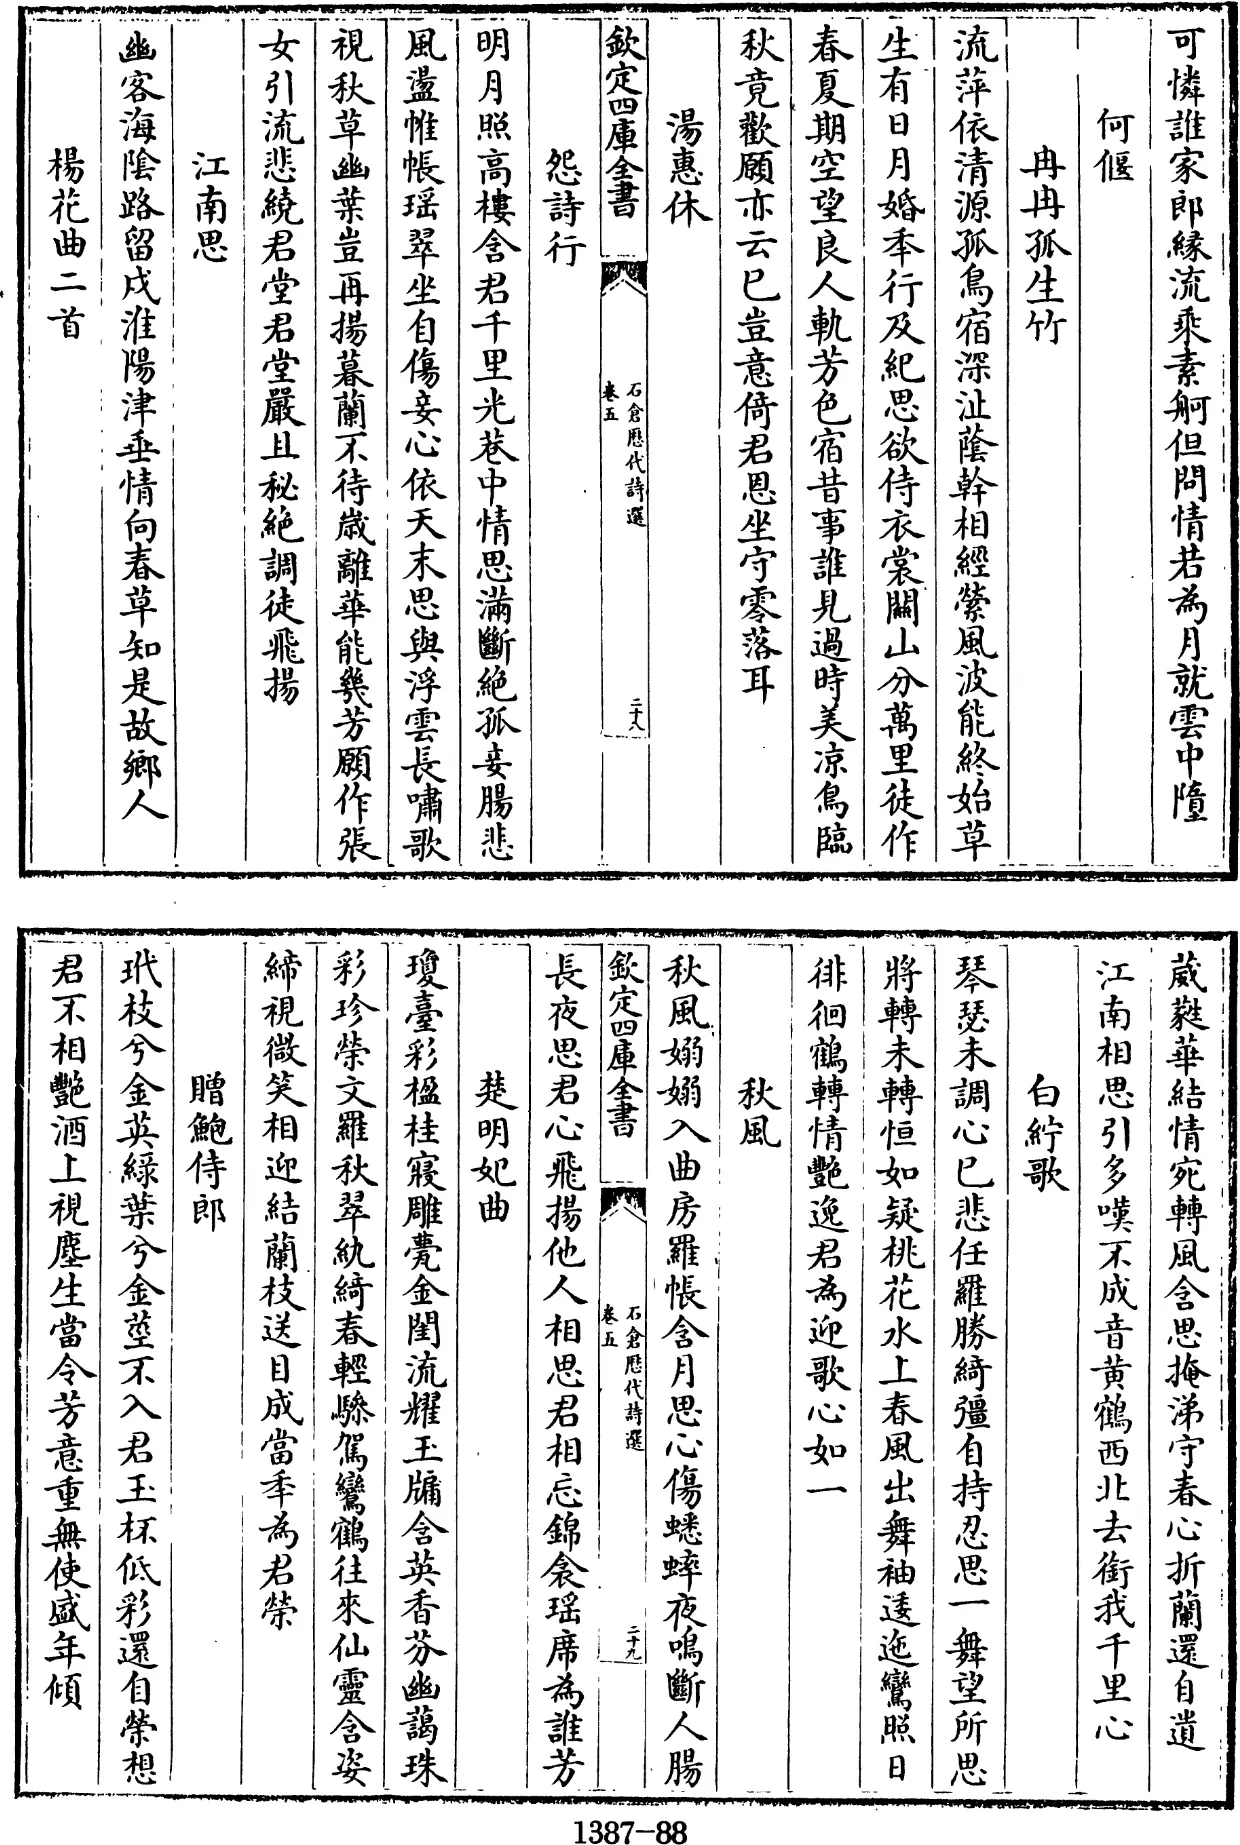 可憐誰家郎緣流乘素舸但問情若為月就雲中墮
何偃
冉冉孤生竹
流萍依清源孤鳥宿深沚蔭幹相經縈風波能終始草
生有日月婚年行及紀思欲侍衣裳關山分萬里徒作
春夏期空望良人軌芳色宿昔事誰見過時美凉鳥臨
秋竟歡願亦云已豈意倚君恩坐守零落耳
湯惠休
欽定四庫全書
石倉歷代詩選
卷五
二十八
怨詩行
明月照高樓含君千里光巷中情思滿斷絶孤妾腸悲
風盪帷帳瑶翠坐自傷妾心依天末思與浮雲長嘯歌
視秋草幽葉豈再揚暮蘭不待歲離華能幾芳願作張
女引流悲繞君堂君堂嚴且秘絶調徒飛揚
江南思
幽客海陰路留戍淮陽津垂情向春草知是故鄉人
楊花曲二首
葳蕤華結情宛轉風含思掩涕守春心折蘭還自遺
江南相思引多嘆不成音黄鶴西北去銜我千里心
白紵歌
琴瑟未調心已悲任羅勝綺彊自持忍思一舞望所思
將轉未轉恒如疑桃花水上春風出舞袖逶迤鸞照日
徘徊鶴轉情艷逸君為迎歌心如一
秋風
秋風嫋嫋入曲房羅帳含月思心傷蟋蟀夜鳴斷人腸
欽定四庫全書
石倉歷代詩選
卷五
二十九
長夜思君心飛揚他人相思君相忘錦衾瑶席為誰芳
楚明妃曲
瓊臺彩楹桂寢雕甍金閨流耀玉牖含英香芬幽藹珠
彩珍榮文羅秋翠紈綺春輕驂駕鸞鶴往來仙靈含姿
綿視微笑相迎結蘭枝送目成當年為君榮
贈鮑侍郎
玳枝兮金英綠葉兮金莖不入君玉杯低彩還自榮想
君不相艷酒上視塵生當令芳意重無使盛年傾
1387-88